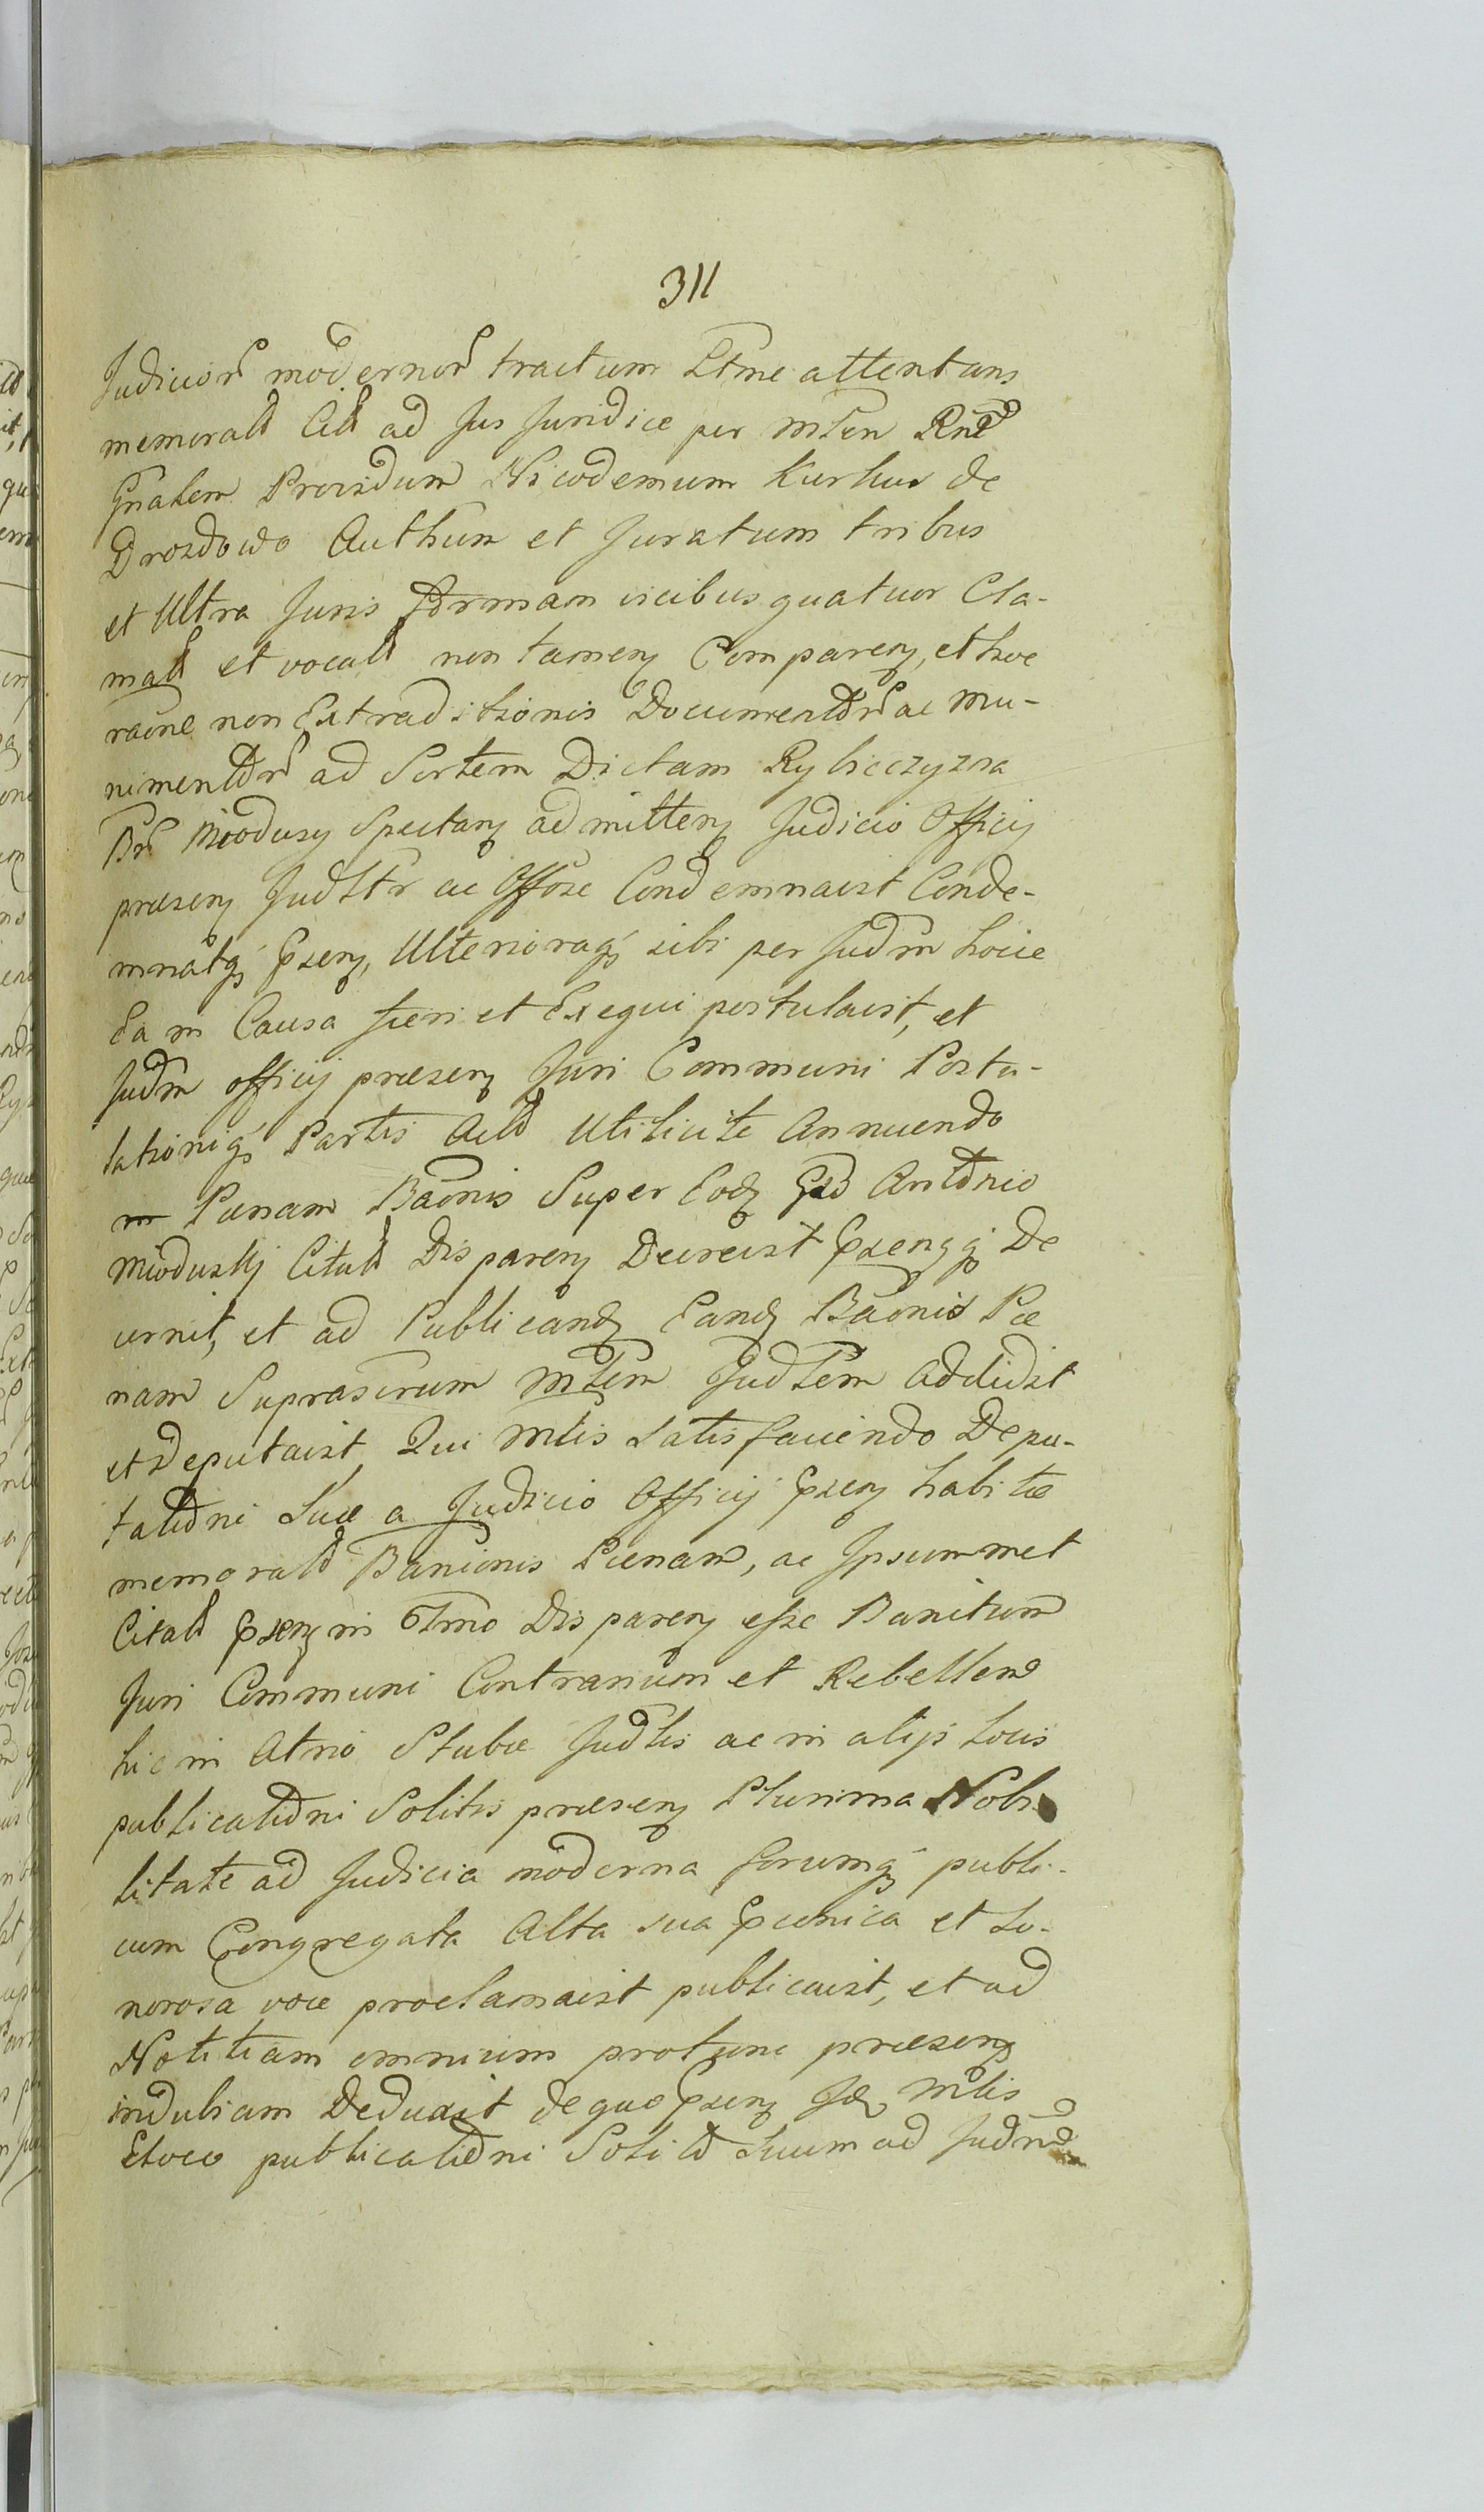 311
Judicior modernor tractum Ltme attentans
memorato Cito ad Jus Juridice per Mten
Gnalem Providum Nicodemum Kurkus de
Drozdowo Authum et Juratum tribus
et Ultra Juris formam vicibus quatuor Cla-
mato et vocato non tamen Comparen, et hoc
raõne non Extraditionis Documentor ac Mu-
nimentor ad Sortem Dictam Rybiczyzna
Br Miodusy Spectan admitten Judicio Officij
præsen Judltr ac Offose Condemnavit Conde-
mnatq Psen, Ulterioraq sibi per Judm hocce
Ea in Causa fieri et Exequi postulavit, et
Judm officij præsen Juri Communi Postu-
lationiq Partis Acto Utilicite Annuendo
Pœnam Baõnis Super Eod Gso Antonio
Mioduski Citato Disparen Decrevit Psenqq De
cernit, et ad Publicand Eand Baõnis Pœ
nam Suprascrum Mtem Judlem Addidit
et Deputavit, Qui Mlis Satisfaciendo Depu-
tationi Suæ a Judicio Officij Psen habitæ
memorato Banionis Pœnam, ac Ipsummet
Citato Psen in Tmo Disparen esse Banitum
Juri Communi Contrarium et Rebellem
hic in Atrio Stubæ Judlis ac in alijs Locis
publicationi Solitis præsen Plurima Nobi
litate ad Judicia moderna forumq publi-
cum Congregata Alta sua Pconica et So-
norosa voce proclamavit publicavit, et ad
Notitiam omnium protunc præsen
indubiam Deduxit de quo Psen Id Mlis
Eloco publicationi Solito Suum ad Judm